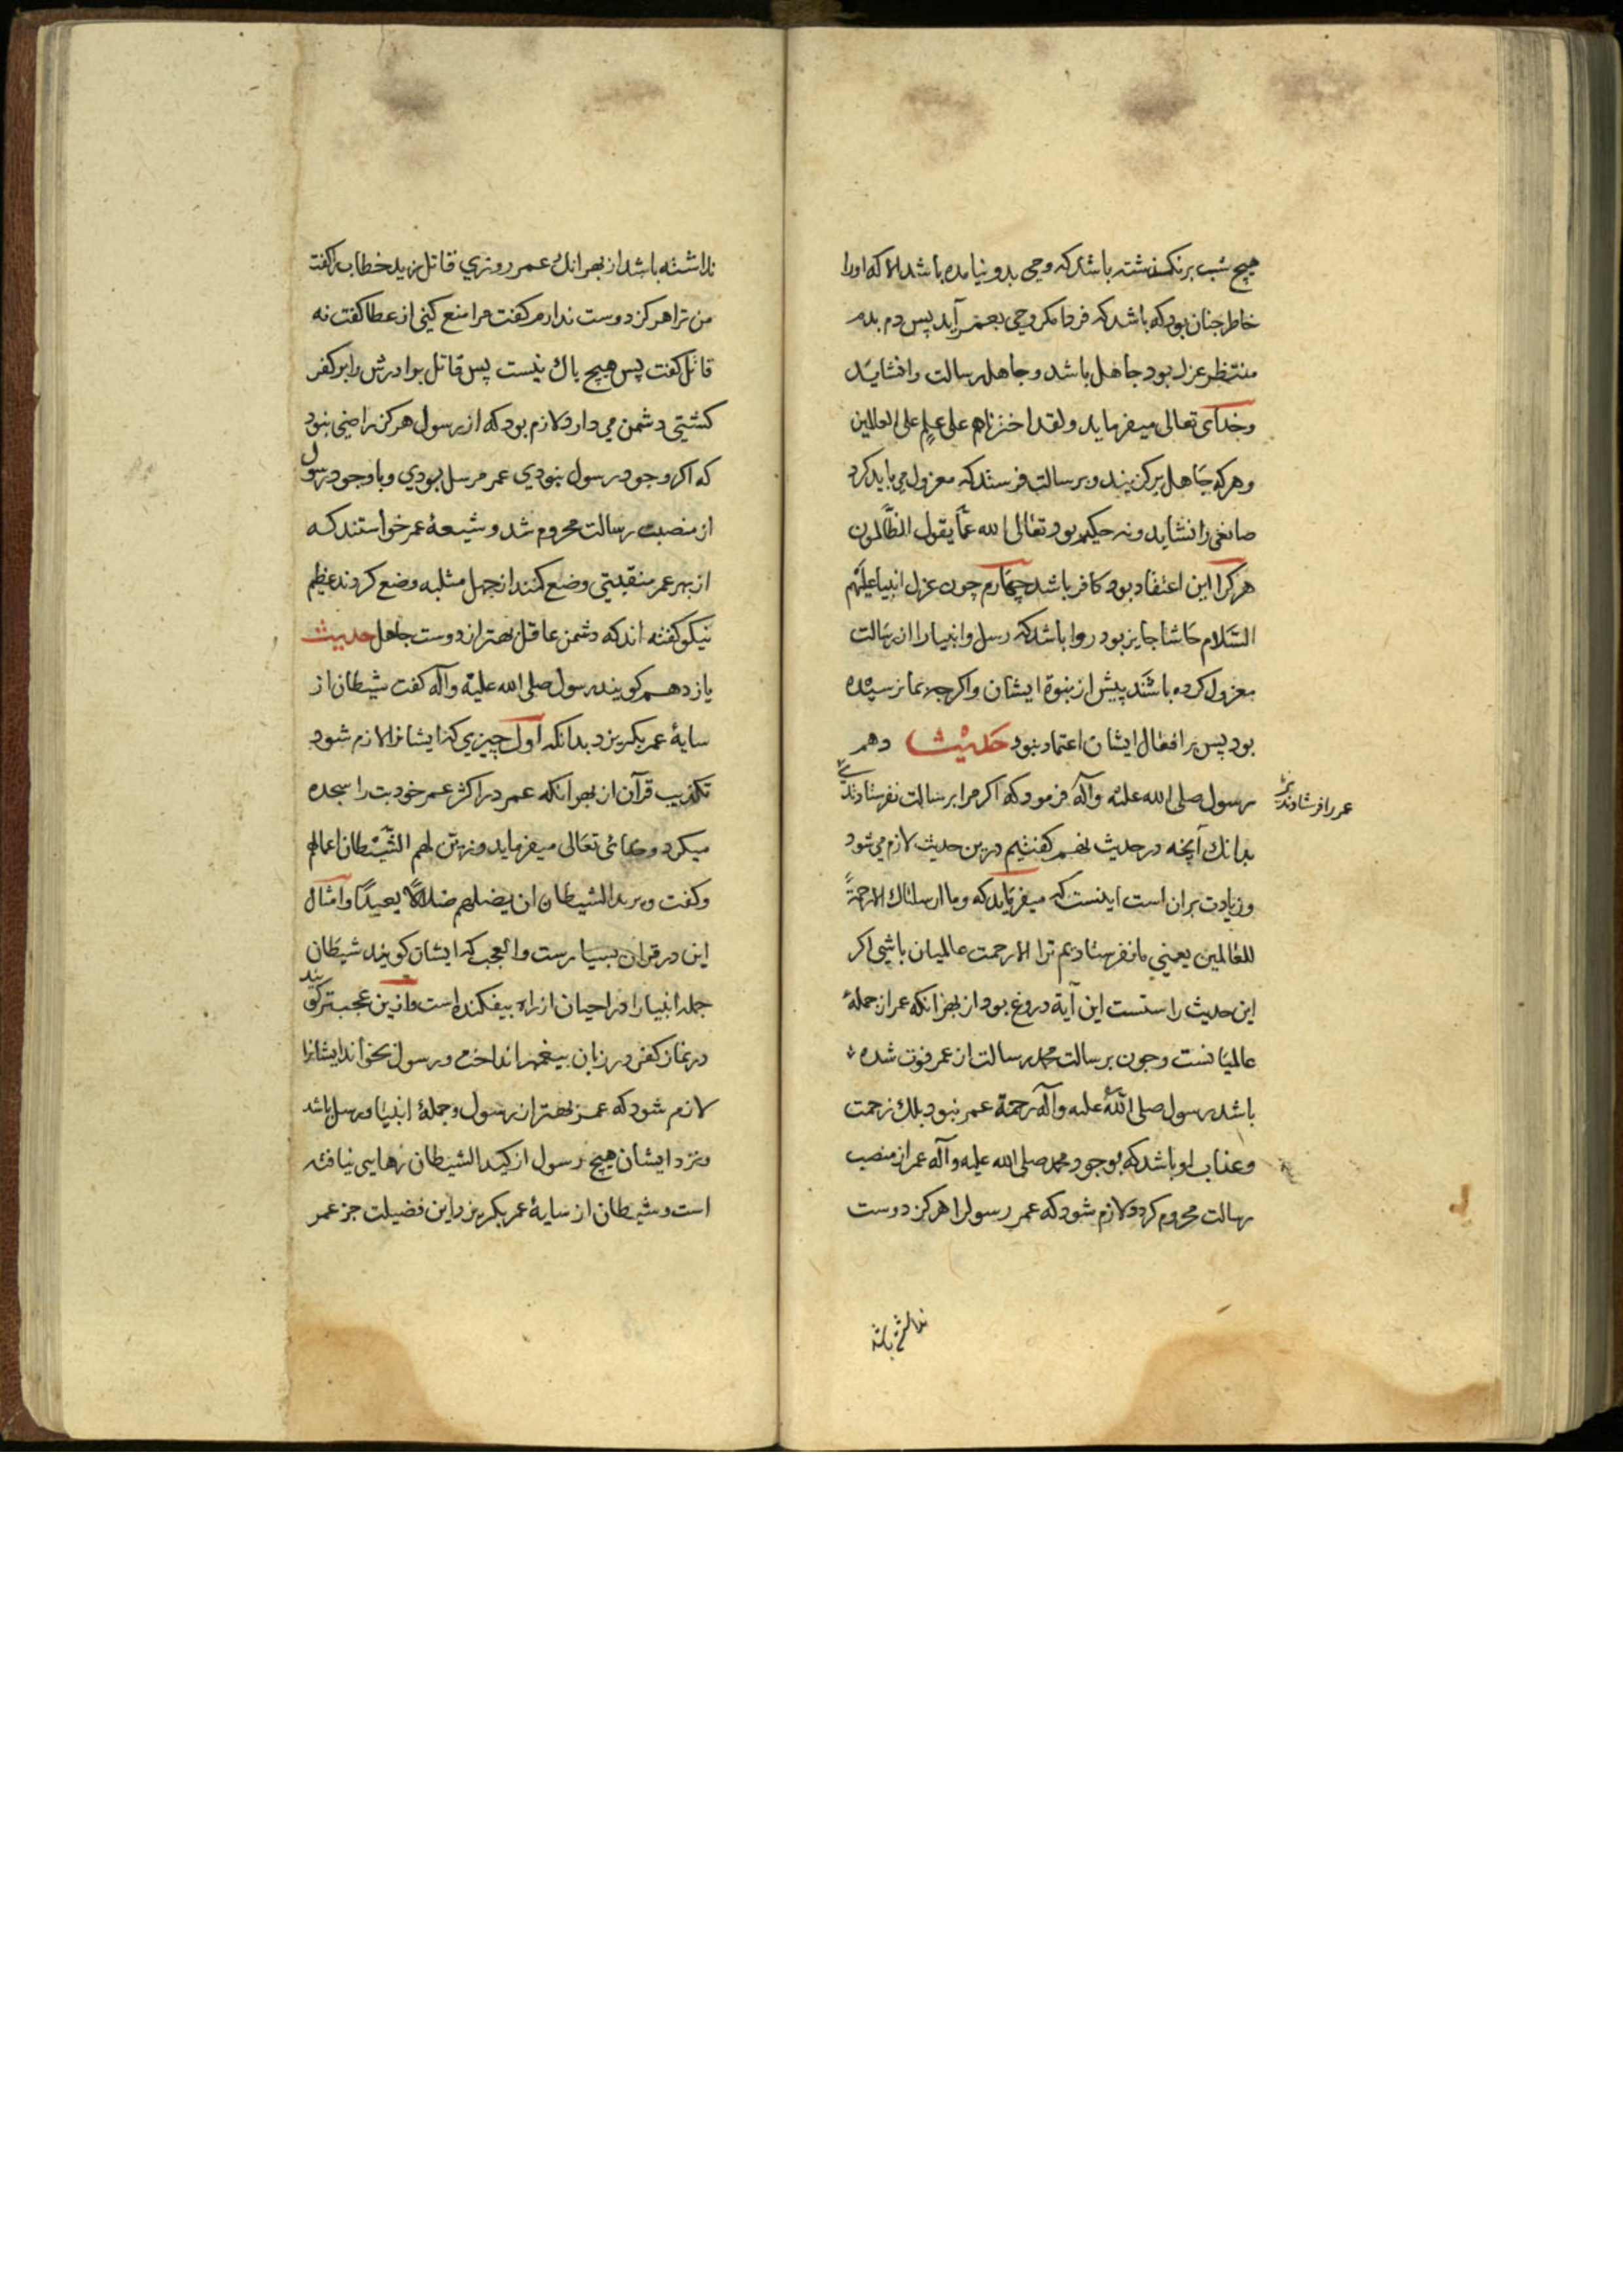 هیچ شب برنکذشته باشد که وحی بدو نیامده باشد الا که اورا
خاطر چنان بود که باشد که فردا مکر وحی بعمر آید پس دم بدم
منتظر عزل بود جاهل باشد و جاهل رسالت را نشاید
وخدای تعالی میفرماید ولقد اخترناهم علی علم علی العالمین
وهرکه جاهل برکزیند وبرسالت فرستد که معزول می باید کرد
صانعی را نشاید ونه حکیم بود تعالی الله عما یقول الظالمون
هرکرا این اعتقاد بود کافر باشد چهارم چون عزل انبیا علیهم
السلام حاشا جایز بود روا باشد که رسل وانبیا را از رسالت
معزول کرده باشند پیش از نبوة ایشان واکرچه بما نرسیده
بود پس بر افعال ایشان اعتماد نبود حدیث دهم
رسول صلی الله علیه وآله فرمود که اکر مرا برسالت نفرستادندی
عمر را فرستادندی
بدانك آنچه در حدیث نهم کفتیم درین حدیث لازم می شود
وزیادت بران است اینست که میفرماید که وما ارسلناك الا رحمة
للعالمین یعنی ما نفرستادیم ترا الا رحمت عالمیان باشی اکر
این حدیث راستست این آیة دروغ بود از بهر انکه عمر از جملهٔ
عالمیانست وچون برسالت محمد رسالت از عمر فوت شده
باشد رسول صلی الله علیه وآله رحمة عمر نبود بلك زحمت
وعذاب او باشد که بوجود محمد صلی الله علیه وآله عمر از منصب
رسالت محروم کردد ولازم شود که عمر رسول را هرکز دوست
نداشته باشد
نداشته باشد از بهر انك عمر روزی قاتل زید خطاب را کفت
من ترا هرکز دوست ندارم کفت مرا منع کنی از عطا کفت نه
قاتل کفت پس هیچ باك نیست پس قاتل برادرش را بر کفر
کشتی دشمن می دارد ولازم بود که از رسول هرکز راضی نبود
که اکر وجود رسول نبودی عمر مرسل بودی وباوجود رسول
از منصب رسالت محروم شد وشیعهٔ عمر خواستند که
از بهر عمر منقبتی وضع کنند از جهل مثلبه وضع کردند عظیم
نیکو کفته اند که دشمن عاقل بهتر از دوست جاهل حدیث
یازدهم کویند رسول صلی الله علیه وآله کفت شیطان از
سایهٔ عمر بکریزد بدانکه اول چیزی که ایشانرا لازم شود
تکذیب قرآن از بهر انکه عمر در اکثر عمر خود بت را سجده
میکرد وخدای تعالی میفرماید وزین لهم الشیطان اعمالهم
وکفت ویرید الشیطان ان یضلهم ضلالا بعیدا وامثال
این در قران بسیارست والعجب که ایشان کویند شیطان
جمله انبیا را در احیان از راه بیفکنده است وازین عجبتر کویند
در نماز کفر در زبان پیغمبر انداخت ورسول بخواند ایشانرا
لازم شود که عمر بهتر از رسول وجملهٔ انبیا ورسل باشد
ونزد ایشان هیچ رسول از کید الشیطان رهایی نیافته
است وشیطان از سایهٔ عمر بکریزد این فضیلت جز عمر